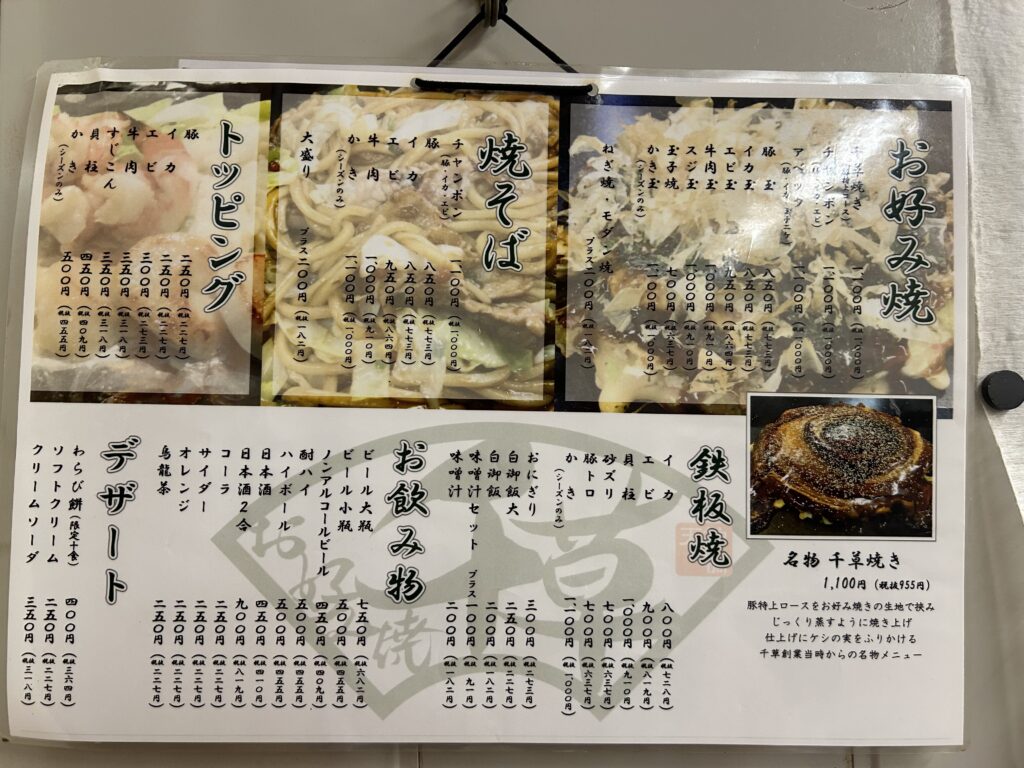 お好み焼
千草焼き(豚特上ロース) 一、一〇〇円(税抜 一、〇〇〇円)
チャンポン(豚・イカ・エビ) 一、一〇〇円(税抜 一、〇〇〇円)
アベック(豚・イカ・玉子二ケ) 一、一〇〇円(税抜 一、〇〇〇円)
豚玉 八五〇円(税抜 七七三円)
イカ玉 八五〇円(税抜 七七三円)
エビ玉 九五〇円(税抜 八六四円)
牛肉玉 一、〇〇〇円(税抜 九一〇円)
スジ玉 一、〇〇〇円(税抜 九一〇円)
玉子焼 七〇〇円(税抜 六三七円)
かき玉(シーズンのみ) 一、一〇〇円(税抜 一、〇〇〇円)
ねぎ焼・モダン焼 プラス二〇〇円(税抜 一八二円)
焼そば
チャンポン(豚・イカ・エビ) 一、一〇〇円(税抜 一、〇〇〇円)
豚 八五〇円(税抜 七七三円)
イカ 八五〇円(税抜 七七三円)
エビ 九五〇円(税抜 八六四円)
牛肉 一、〇〇〇円(税抜 九一〇円)
かき(シーズンのみ) 一、一〇〇円(税抜 一、〇〇〇円)
大盛り プラス二〇〇円(税抜 一八二円)
トッピング
豚 二五〇円(税抜 二二七円)
イカ 二五〇円(税抜 二二七円)
エビ 三〇〇円(税抜 二七三円)
牛肉 三五〇円(税抜 三一八円)
すじこん 三五〇円(税抜 三一八円)
貝柱 四五〇円(税抜 四〇九円)
かき(シーズンのみ) 五〇〇円(税抜 四五五円)
名物 千草焼き
1,100円(税抜955円)
豚特上ロースをお好み焼きの生地で挟み
じっくり蒸すように焼き上げ
仕上げにケシの実をふりかける
千草創業当時からの名物メニュー
鉄板焼
イカ 八〇〇円(税抜 七二八円)
エビ 九〇〇円(税抜 八一九円)
貝柱 一、〇〇〇円(税抜 九一〇円)
砂ズリ 七〇〇円(税抜 六三七円)
豚トロ 七〇〇円(税抜 六三七円)
かき(シーズンのみ) 一、一〇〇円(税抜 一、〇〇〇円)
おにぎり 三〇〇円(税抜 二七三円)
白御飯大 二五〇円(税抜 二二七円)
白御飯 二〇〇円(税抜 一八二円)
味噌汁セット プラス一〇〇円(税抜 九一円)
味噌汁 二〇〇円(税抜 一八二円)
お飲み物
ビール大瓶 七五〇円(税抜 六八二円)
ビール小瓶 五〇〇円(税抜 四五五円)
ノンアルコールビール 四五〇円(税抜 四〇九円)
酎ハイ 五〇〇円(税抜 四五五円)
ハイボール 五〇〇円(税抜 四五五円)
日本酒 四五〇円(税抜 四一〇円)
日本酒2合 九〇〇円(税抜 八一九円)
コーラ 二五〇円(税抜 二二七円)
サイダー 二五〇円(税抜 二二七円)
オレンジ 二五〇円(税抜 二二七円)
烏龍茶 二五〇円(税抜 二二七円)
デザート
わらび餅(限定十食) 四〇〇円(税抜 三六四円)
ソフトクリーム 二五〇円(税抜 二二七円)
クリームソーダ 三五〇円(税抜 三一八円)
お好み焼
千草